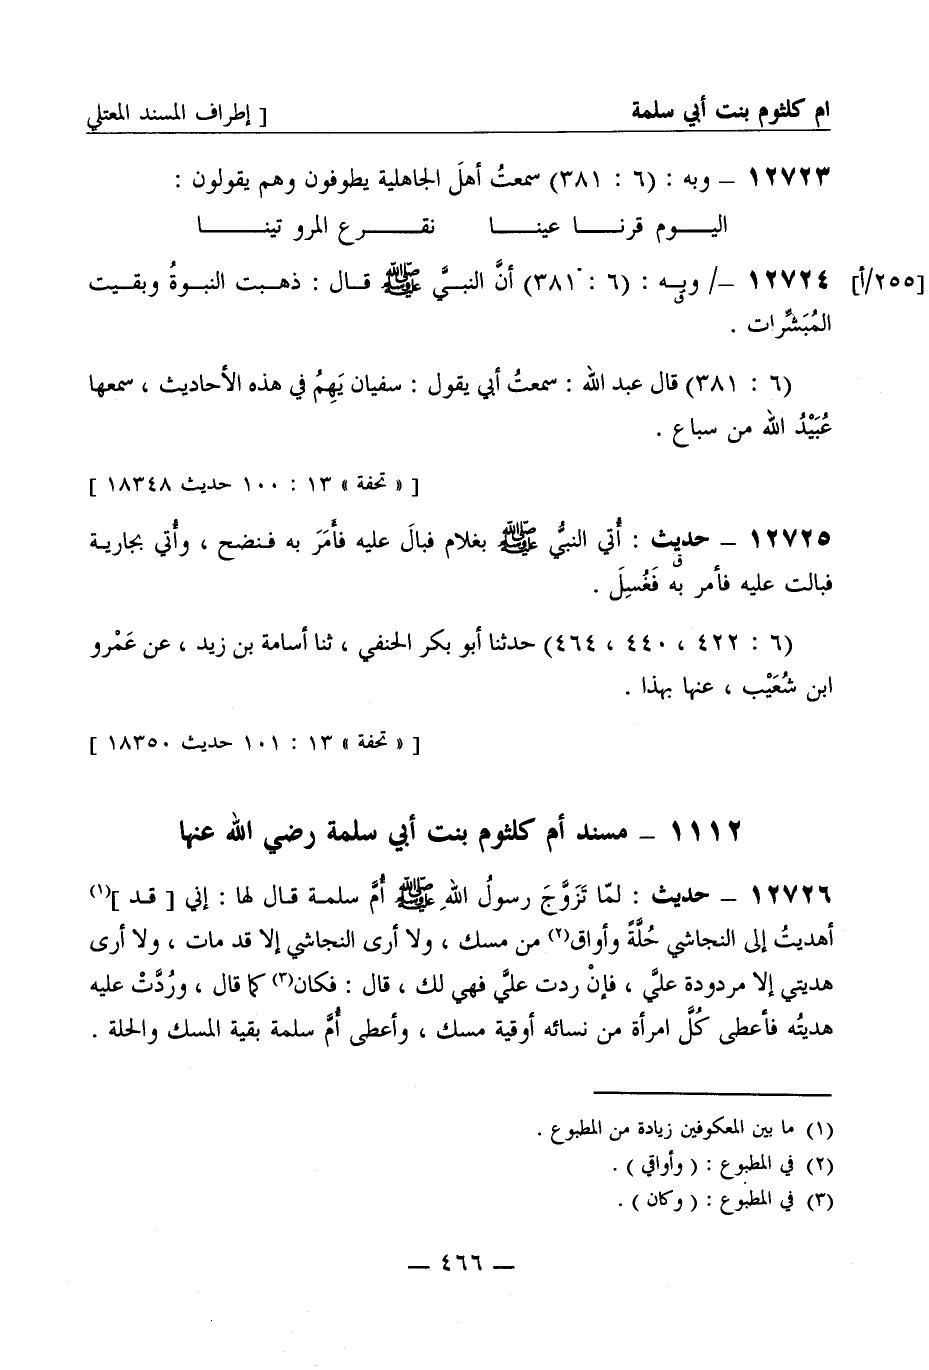 ام كلثوم بنت أبي سلمة [ إطراف المسند المعتلي
١٢٧٢٣ - وبه : (٦ : ٣٨١) سمعتُ أهلَ الجاهلية يطوفون وهم يقولون :
اليـــوم قرنـــا عينـــا نقـــرع المرو تينـــا
[٢٥٥/أ] ١٢٧٢٤ -/ وبه : (٦ : ٣٨١) أنَّ النبيَّ ﷺ قال : ذهبت النبوةُ وبقيت
المُبَشِّرات .
(٦ : ٣٨١) قال عبد الله : سمعتُ أبي يقول : سفيان يَهِمُ في هذه الأحاديث ، سمعها
عُبَيْدُ الله من سباع .
[ « تحفة » ١٣ : ١٠٠ حديث ١٨٣٤٨ ]
١٢٧٢٥ - حديث : أُتي النبيُّ ﷺ بغلام فبالَ عليه فأمَرَ به فنضح ، وأُتي بجارية
فبالت عليه فأمر به فَغُسِلَ .
(٦ : ٤٢٢ ، ٤٤٠ ، ٤٦٤) حدثنا أبو بكر الحنفي ، ثنا أسامة بن زيد ، عن عَمْرو
ابن شُعَيْب ، عنها بهذا .
[ « تحفة » ١٣ : ١٠١ حديث ١٨٣٥٠ ]
١١١٢ - مسند أم كلثوم بنت أبي سلمة رضي الله عنها
١٢٧٢٦ - حديث : لمّا تَزَوَّجَ رسولُ اللهِ ﷺ أُمَّ سلمة قال لها : إني [ قد ](١)
أهديتُ إلى النجاشي حُلَّةً وأواق(٢) من مسك ، ولا أرى النجاشي إلا قد مات ، ولا أرى
هديتي إلا مردودة عليَّ ، فإنْ ردت عليَّ فهي لك ، قال : فكان(٣) كما قال ، ورُدَّتْ عليه
هديتُه فأعطى كُلَّ امرأة من نسائه أوقية مسك ، وأعطى أُمَّ سلمة بقية المسك والحلة .
(١) ما بين المعكوفين زيادة من المطبوع .
(٢) في المطبوع : ( وأواقي ) .
(٣) في المطبوع : ( وكان ) .
— ٤٦٦ —